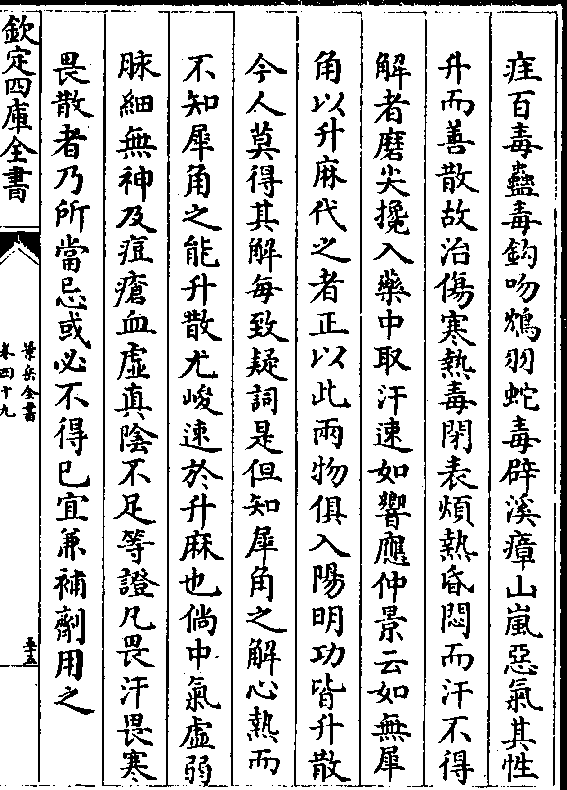 疰百毒蠱毒鈎吻鴆羽蛇毒辟溪瘴山嵐惡氣其性
升而善散故治傷寒熱毒閉表煩熱昏悶而汗不得
解者磨尖攙入藥中取汗速如響應仲景云如無犀
角以升麻代之者正以此兩物俱入陽明功皆升散
今人莫得其解每致疑詞是但知犀角之解心熱而
不知犀角之能升散尤峻速於升麻也倘中氣虛弱
脉細無神及痘瘡血虛真陰不足等證凡畏汗畏寒
畏散者乃所當忌或必不得已宜兼補劑用之
欽定四庫全書
景岳全書
卷四十九
五五